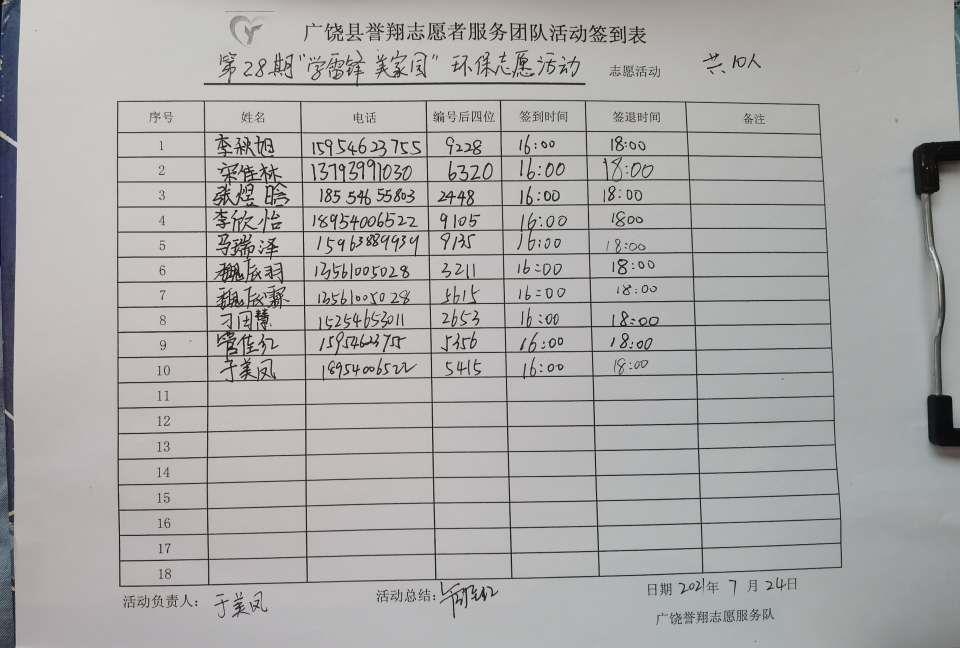 广饶县誉翔志愿者服务团队活动签到表
第28期"学雷锋 美家园"环保志愿活动 志愿活动 共10人
序号 姓名 电话 编号后四位 签到时间 签退时间 备注
1 李秋旭 15954623755 9228 16:00 18:00
2 宋佳林 13793991030 6320 16:00 18:00
3 张煜晗 18554655803 2448 16:00 18:00
4 李欣怡 18954006522 9105 16:00 1800
5 马瑞泽 15963889939 9135 16:00 18:00
6 魏辰羽 13561005028 3211 16:00 18:00
7 魏辰霖 13561005028 5615 16:00 18:00
8 刁田慧 15254653011 2653 16:00 18:00
9 管佳红 15954623755 5356 16:00 18:00
10 于美凤 18954006522 5415 16:00 18:00
11
12
13
14
15
16
17
18
活动负责人： 于美凤 活动总结： 日期 2021年 7 月 24日
广饶誉翔志愿服务队